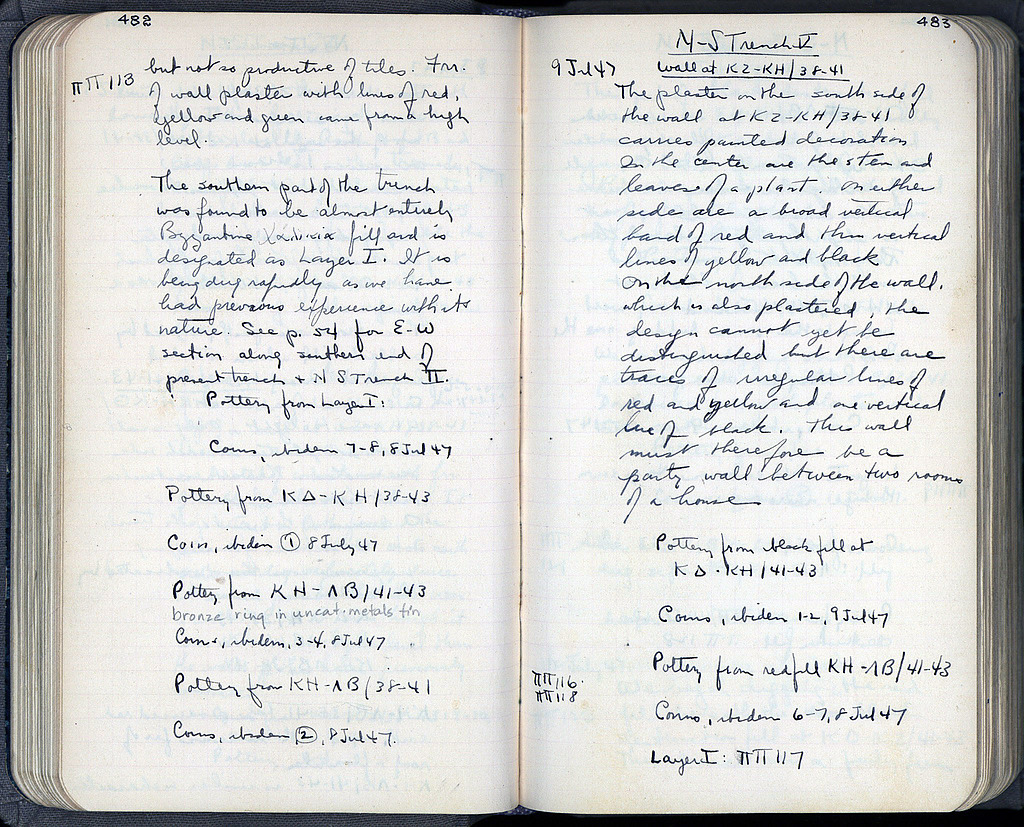 482
ΠΠ 113
but not so productive of tiles. Frr.
of wall plaster with lines of red,
yellow and green came from a high
level.
The southern part of the trench
was found to be almost entirely
Byzantine fill and is
designated as Layer I. It is
being dug rapidly as we have
had previous experience with its
nature. See p. 54 for E-W
section along southern end of
present trench + N S Trench II.
Pottery from Layer I:
Coins, ibidem 7-8, 8 Jul 47
Pottery from ΚΔ-ΚΗ/38-43
Coins, ibidem ① 8 July 47
Pottery from ΚΗ-ΛΒ/41-43
bronze ring in uncat. metals tin
Coins, ibidem, 3-4, 8 Jul 47
Pottery from ΚΗ-ΛΒ/38-41
Coins, ibidem ②, 8 Jul 47.
483
N-S Trench V
9 Jul 47
Wall at ΚΖ-ΚΗ/38-41
The plaster on the south side of
the wall at ΚΖ-ΚΗ/38-41
carries painted decoration
In the center are the stem and
leaves of a plant. On either
side are a broad vertical
band of red and thin vertical
lines of yellow and black
On the north side of the wall,
which is also plastered, the
design cannot yet be
distinguished but there are
traces of irregular lines of
red and yellow and one vertical
line of black. This wall
must therefore be a
party wall between two rooms
of a house
Pottery from black fill at
ΚΔ-ΚΗ/41-43
Coins, ibidem 1-2, 9 Jul 47
Pottery from red fill ΚΗ-ΛΒ/41-43
ΠΠ 116.
ΠΠ 118
Coins, ibidem 6-7, 8 Jul 47
Layer I: ΠΠ 117